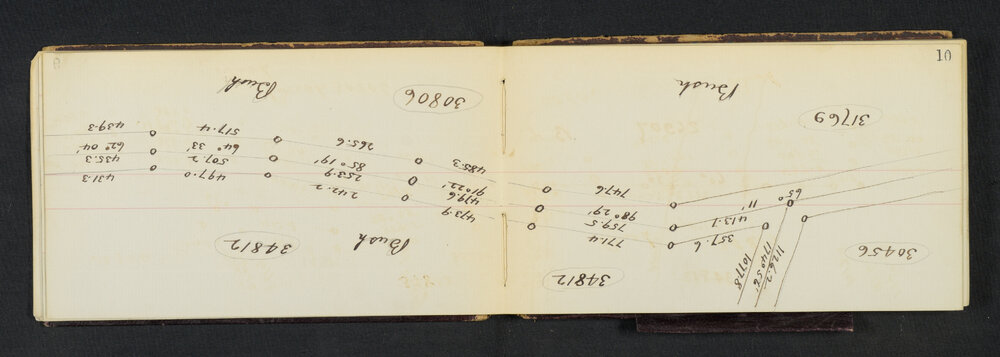 10
Bush
30806
Bush
31769
439.3
62° 04'
435.3
431.3
517.4
64° 33'
507.2
497.0
265.6
85° 19'
253.9
242.2
485.3
91° 22'
479.6
473.9
747.6
98° 29'
759.5
771.4
65° 11'
413.1
357.6
1126.2
1077.8
34812
Bush
34812
30456